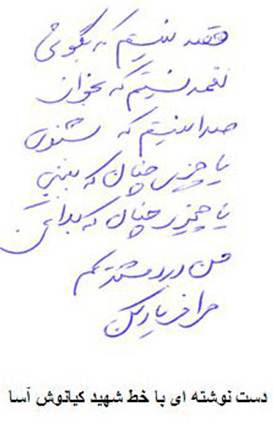 قصه نیستم که بگویی
نغمه نیستم که بخوانی
صدا نیستم که بشنوی
یا چیزی چنان که ببینی
یا چیزی چنان که بدانی
من درد مشترکم
مرا فریاد کن
دست نوشته ای با خط شهید کیانوش آسا